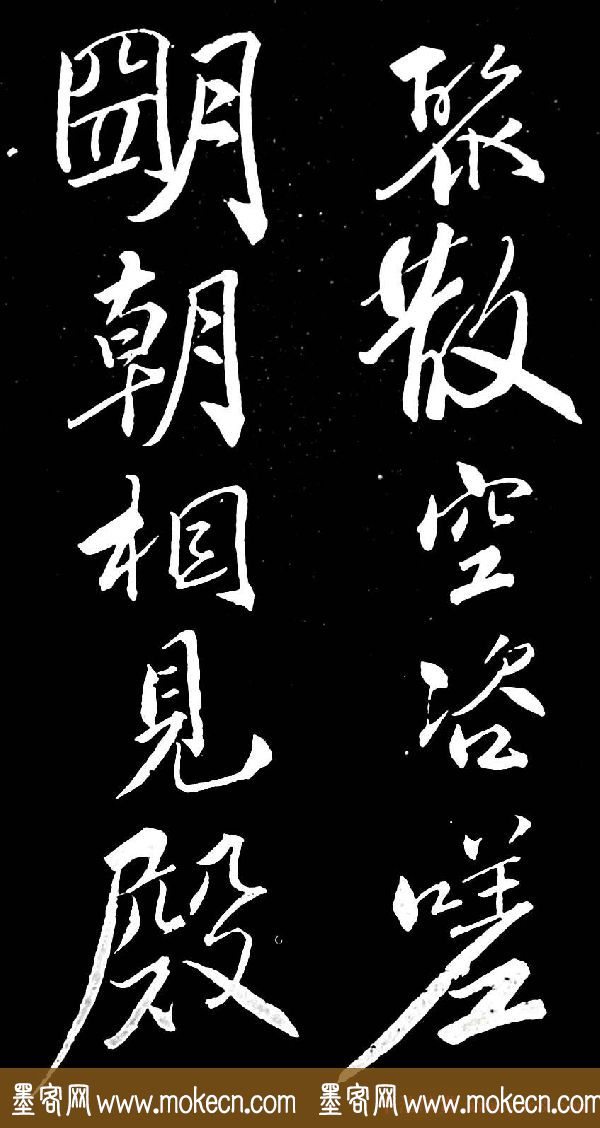 聚散空咨嗟
朙朝相見殿
墨客网 www.mokecn.com 墨客网 www.mokecn.com